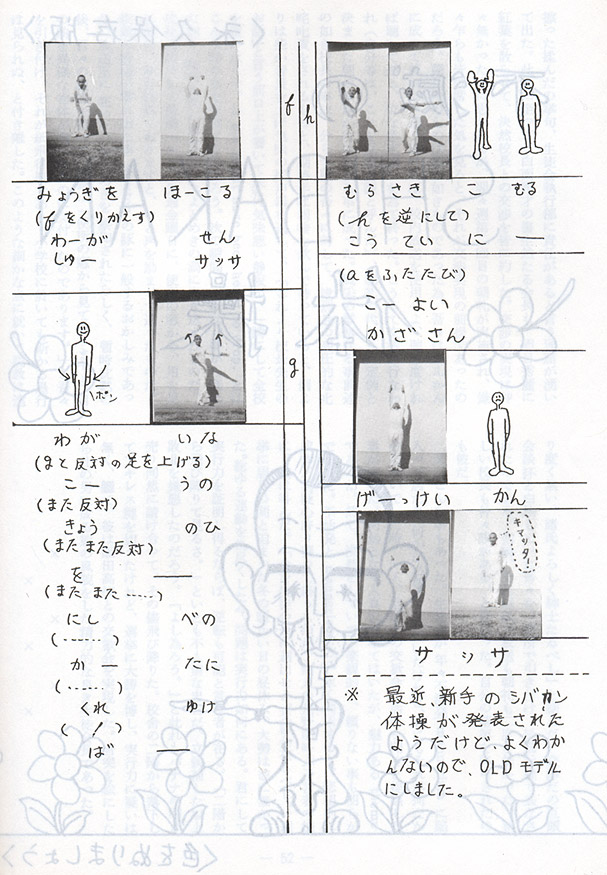 f
みょうぎを ほーこる
(fをくりかえす)
わーが せん
しゅー サッサ
g
ポン
わが いな
(gと反対の足を上げる)
こー うの
(また反対)
きょう のひ
(またまた反対)
を ー
(またまた……)
にし べの
(……)
かー たに
(……)
くれ ゆけ
(!)
ば ー
h
むらさき こ むる
(hを逆にして)
こうてい に ー
(aをふたたび)
こーよい
かざさん
げーっけい かん
キマッター
サッサ
※ 最近、新手のシバカン
体操が発表された
ようだけど、よくわか
んないので、OLDモデル
にしました。